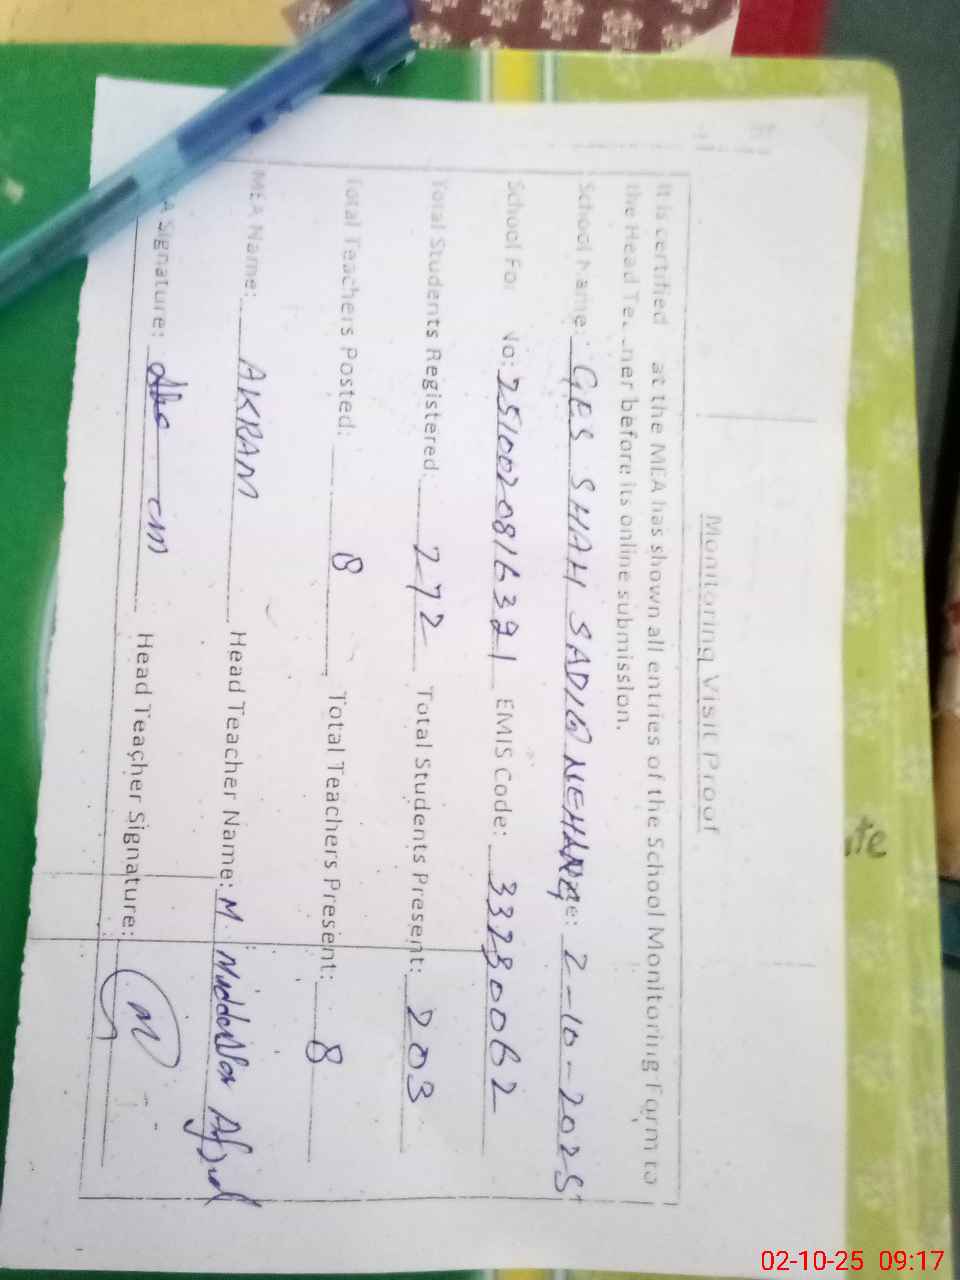 Monitoring Visit Proof
It is certified at the MEA has shown all entries of the School Monitoring Form to
the Head Te ner before its online submission.
School Name: GES SHAH SADIQ NEHANG e: 2-10-2025
School For No: 2510020816321 EMIS Code: 33230062
Total Students Registered: 272 Total Students Present: 203
Total Teachers Posted: 8 Total Teachers Present: 8
MEA Name: AKRAM Head Teacher Name: M. Mudassar Afzal
A Signature: Head Teacher Signature: M
ate
02-10-25 09:17